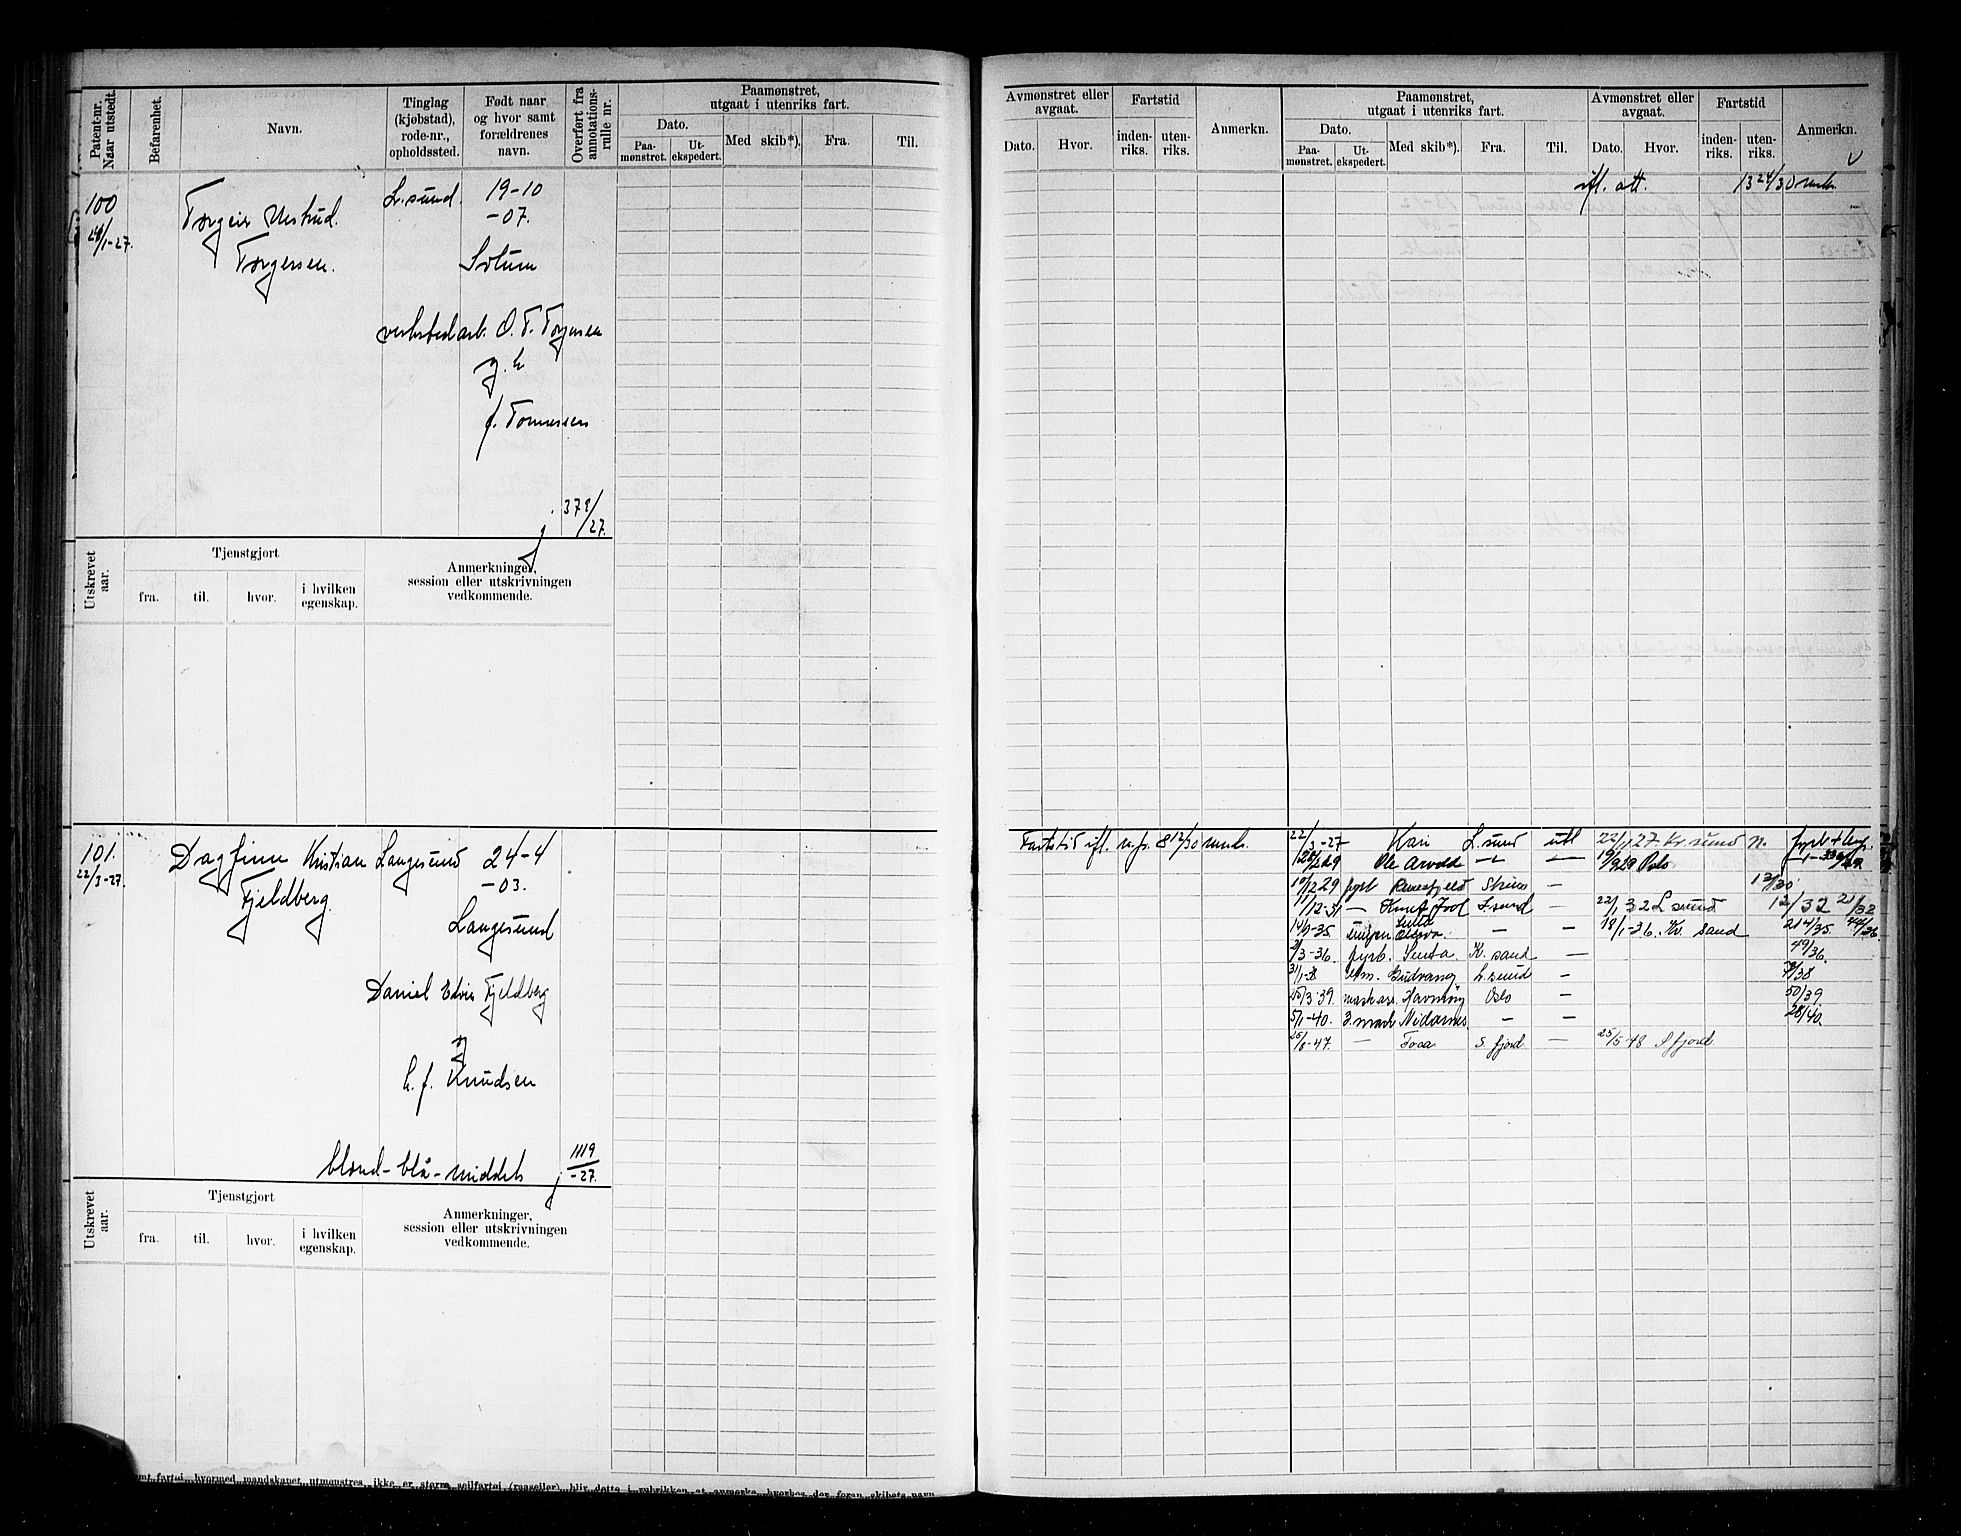 Patent-nr.
Naar utstedt.
Befarenhet.
Navn.
Tinglag
(kjøbstad),
rode-nr.,
opholdssted.
Født naar
og hvor samt
forældrenes
navn.
Overført fra
annotations-
rulle nr.
Paamønstret,
utgaat i utenriks fart.
Dato.
Paa-
mønstret.
Ut-
ekspedert.
Med skib*).
Fra.
Til.
100
29/1-27.
Torgeir
Torgersen.
L.sund.
19-10
-07.
Solum
O. T. Torgersen
f. Tommesen
378/27.
Utskrevet
aar.
Tjenstgjort
fra.
til.
hvor.
i hvilken
egenskap.
Anmerkninger,
session eller utskrivningen
vedkommende.
101.
22/3-27.
Dagfinn Kristian
Fjeldberg
Langesund
24-4
-03.
Langesund
Daniel Edvin Fjeldberg
h. f. Knudsen
blond-blå-middels
1119
-27.
Utskrevet
aar.
Tjenstgjort
fra.
til.
hvor.
i hvilken
egenskap.
Anmerkninger,
session eller utskrivningen
vedkommende.
fartøi, hvormed mandskapet utmønstres, ikke er større seilfartøi (raaseiler), blir dette i rubrikken at anmerke
Avmønstret eller
avgaat.
Dato.
Hvor.
Fartstid
inden-
riks.
uten-
riks.
Anmerkn.
Paamønstret,
utgaat i utenriks fart.
Dato.
Paa-
mønstret.
Ut-
ekspedert.
Med skib*).
Fra.
Til.
Avmønstret eller
avgaat.
Dato.
Hvor.
Fartstid
inden-
riks.
uten-
riks.
Anmerkn.
ifl. att. 13 24/30 mdr.
Fartstid ifl. 8 12/30 mdr.
22/3-27 Kari L.sund utl 22/1 27 Kr.sund N.
Ole Aarvold — — 19/9 29 Oslo
10/12 29 fyrb — 13/30
11/12-31 — Knut L.sund — 22/1 32 L sund 12/32 21/32
— — 18/1-36. Kr. sand 214/35.
2/3-36. fyrb. Senta. Kr. sand — 49/36.
Gudvang L.sund — /38
Havnhøy Oslo — 50/39.
5/1-40. 3. mask Nidarnes — — 28/40.
25/8-47. — Tosca S. fjord — 25/5-48 S fjord